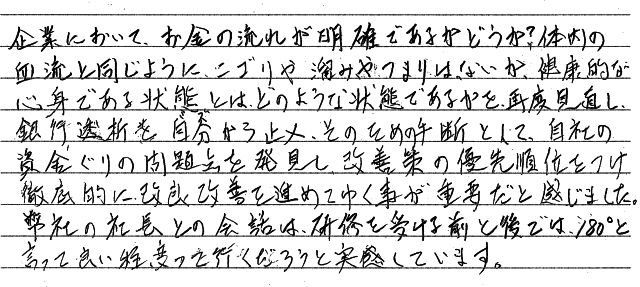 企業において、お金の流れが明確であるかどうか?体内の
血流と同じように、ニゴリや溜みやつまりはないか、健康的な
心身である状態とは、どのような状態であるかを、再度見直し、
銀行透析を自分から止め、そのための手断として、自社の
資金ぐりの問題点を発見し、改善策の優先順位をつけ
徹底的に改良改善を進めてゆく事が重要だと感じました。
弊社の社長との会話は、研修を受ける前と後では、180°と
言って良い程変って行くだろうと実感しています。